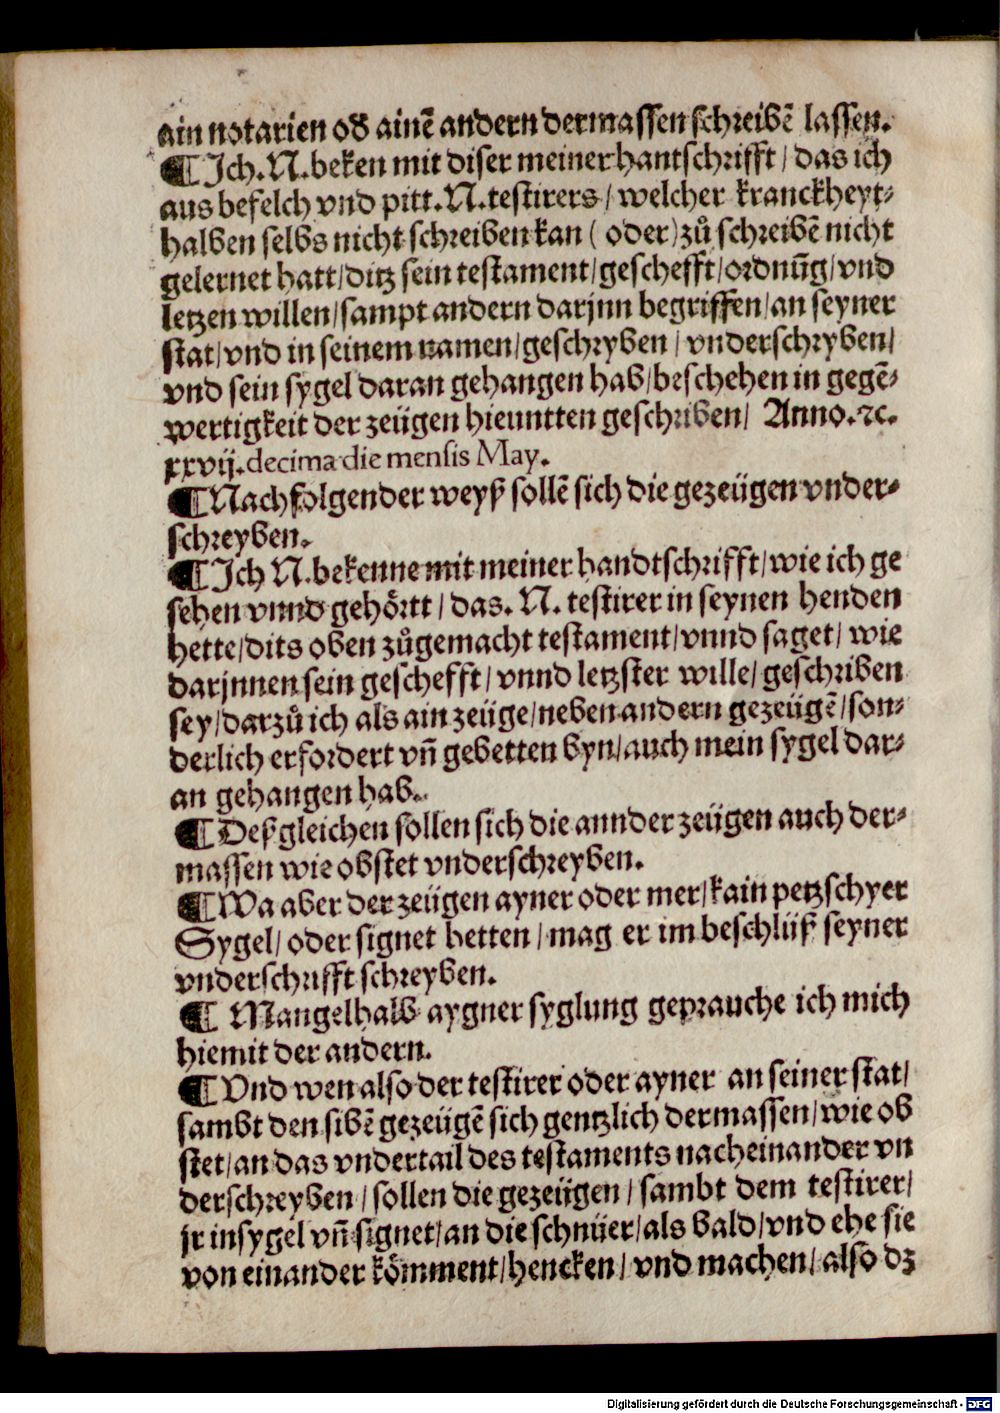 ain notarien od̕ ainē andern dermassen schreibē lassen.
¶ Ich. N. beken mit diser meiner hantschrifft / das ich
aus befelch vnd pitt. N. testirers / welcher kranckheyt⸗
halben selbs nicht schreiben kan ( oder ) zů schreibē nicht
gelernet hatt / ditz sein testament / geschefft / ordnūg / vnd
letzen willen / sampt andern darjnn begriffen / an seyner
stat / vnd in seinem namen / geschryben / vnderschryben /
vnd sein sygel daran gehangen hab / beschehen in gegē⸗
wertigkeit der zeügen hieuntten geschriben / Anno. ⁊c.
xxvij. decima die mensis May.
¶ Nachfolgender weyß sollē sich die gezeügen vnder⸗
schreyben.
¶ Ich N. bekenne mit meiner handtschrifft / wie ich ge
sehen vnnd gehörtt / das. N. testirer in seynen henden
hette / dits oben zůgemacht testament / vnnd saget / wie
darjnnen sein geschefft / vnnd letzster wille / geschriben
sey / darzů ich als ain zeüge / neben andern gezeügē / son⸗
derlich erfordert vn̄ gebetten byn / auch mein sygel dar⸗
an gehangen hab.
¶ Deßgleichen sollen sich die annder zeügen auch der⸗
massen wie obstet vnderschreyben.
¶ Wa aber der zeügen ayner oder mer / kain petzschyer
Sygel / oder signet hetten / mag er im beschlüß seyner
vnderschrifft schreyben.
¶ Mangelhalb aygner syglung geprauche ich mich
hiemit der andern.
¶ Vnd wen also der testirer oder ayner an seiner stat /
sambt den sibē gezeügē sich gentzlich dermassen / wie ob
stet / an das vndertail des testaments nacheinander vn
derschreyben / sollen die gezeügen / sambt dem testirer /
jr insygel vn̄ signet / an die schnüer / als bald / vnd ehe sie
von einander kömment / hencken / vnd machen / also dz
Digitalisierung gefördert durch die Deutsche Forschungsgemeinschaft - DFG